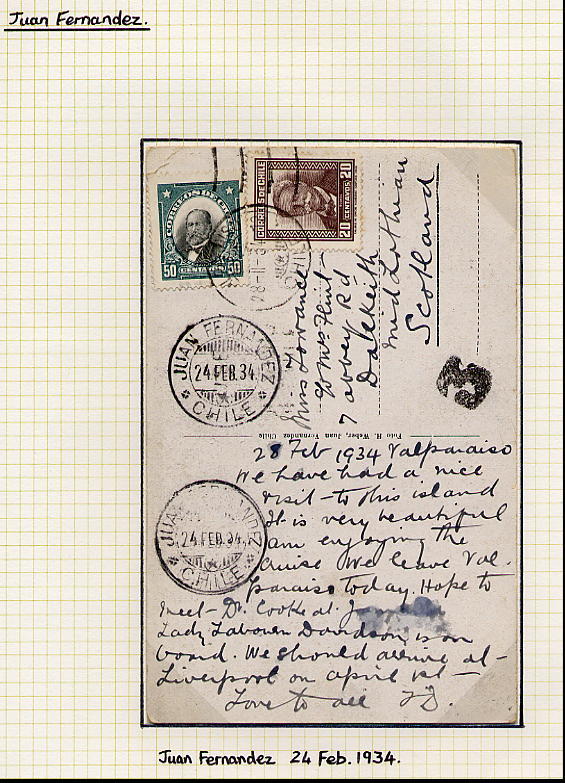 Juan Fernandez.
CORREOS DE
50 CENTAVOS 50
CORREOS DE CHILE
20 CENTAVOS 20
JUAN FERNANDEZ
24 FEB. 34
CHILE
Miss
c/o Mrs Flint
7 Abbey Rd
Dalkeith
Mid Lothian
Scotland
3
Foto H. Weber, Juan Fernandez Chile
28 Feb 1934 Valparaiso
We have had a nice
visit to this island
It is very beautiful
am enjoying the
cruise We leave Val-
paraiso today. Hope to
meet Dr. Cooke at
Lady Davidson is on
board. We should arrive at
Liverpool on april 1st
Love to all
JUAN FERNANDEZ
24 FEB. 34
CHILE
Juan Fernandez 24 Feb. 1934.